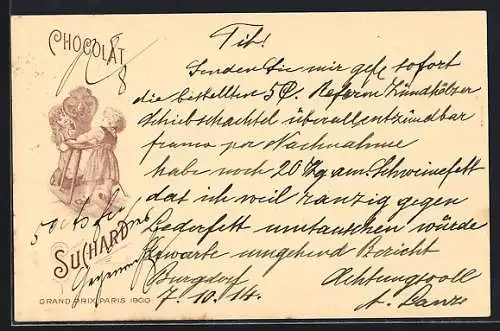 CHOCOLAT
SUCHARD
GRAND PRIX PARIS 1900
Tit!
Senden Sie mir gefl sofort
die bestellten 5 Reform Zündhölzer
Schiebschachtel überallentzündbar
franco per Nachnahme
habe noch 20 Kg am Schweinefett
das ich weil ranzig gegen
Lederfett umtauschen würde
Erwarte umgehend Bericht
Burgdorf Achtungsvoll
7.10.14.